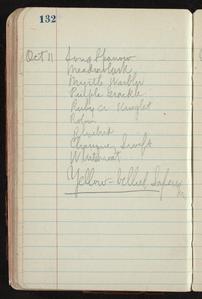 132
Oct 11 Song Sparrow
Meadowlark
Myrtle Warbler
Purple Grackle
Ruby cr. Kinglet
Robin
Bluebird
Chimney Swift
Whitethroat
Yellow-bellied Sapsucker